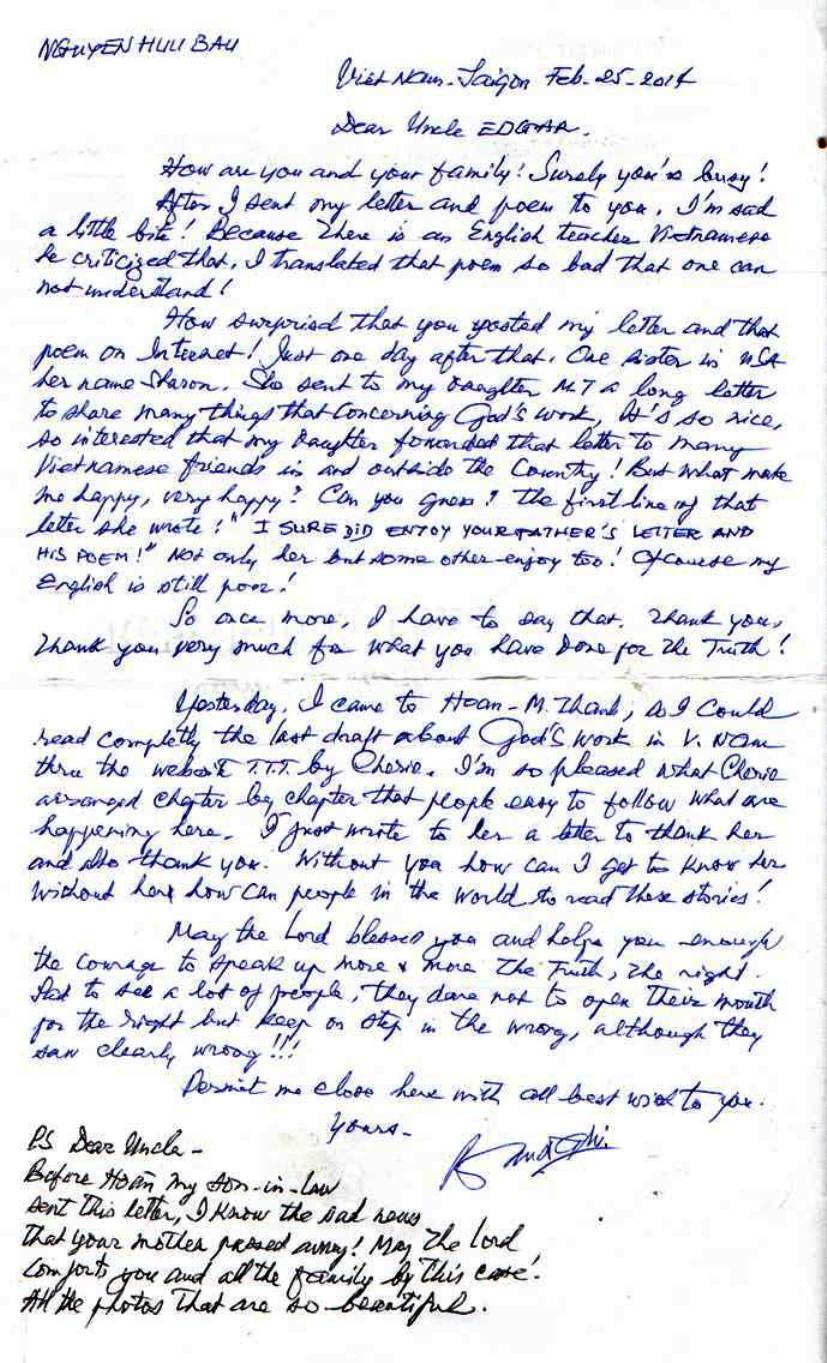 NGUYEN HUU BAU
Viet Nam-Saigon Feb-25-2014
Dear Uncle EDGAR.
How are you and your family! Surely you're busy!
After I sent my letter and poem to you, I'm sad
a little bite! Because there is an English teacher Vietnamese
he criticized that, I translated that poem so bad that one can
not understand!
How surprised that you posted my letter and that
poem on Internet! Just one day after that. One sister in USA
her name Sharon. She sent to my Daughter M.T a long letter
to share many things that concerning God's work, It's so nice,
so interested that my Daughter forwarded that letter to many
Vietnamese friends in and outside the Country! But what make
me happy, very happy? Can you guess? the first line of that
letter she wrote! "I SURE DID ENJOY YOUR FATHER'S LETTER AND
HIS POEM!" Not only her but some other enjoy too! Of course my
English is still poor!
So once more, I have to say that. Thank you,
Thank you very much for what you have done for the Truth!
Yesterday, I came to Hoan-M.Thanh, so I could
read completly the last draft about God's work in V. NAm
thru the website T.T.T. by Cherie. I'm so pleased what Cherie
arranged chapter by chapter that people easy to follow what are
happening here. I just wrote to her a letter to thank her
and also thank you. Without you how can I get to know her
without her how can people in the world to read these stories!
May the Lord blesses you and helps you enough
the courage to speak up more & more the Truth, the right.
Sad to see a lot of people, they dare not to open their mouth
for the right but keep on step in the wrong, although they
saw clearly wrong!!!
Permit me close here with all best wish to you.
Yours-
PS Dear Uncle-
Before Hoan my son-in-law
sent this letter, I know the sad news
that your mother passed away! May the Lord
comforts you and all the family by this case!
All the photos that are so beautiful.